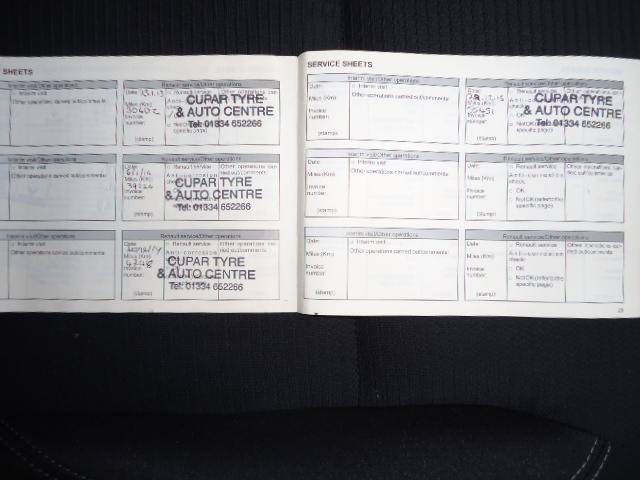 SHEETS
Interim visit/Other operations
Interim visit
Other operations carried out/comments:
Renault service/Other operations
Date:
23.1.13
Miles (Km)
30602
Invoice
number:
(stamp)
Renault service
Other operations carried out/comments:
CUPAR TYRE
& AUTO CENTRE
Tel: 01334 652266
Interim visit/Other operations
Interim visit
Other operations carried out/comments:
Renault service/Other operations
Date:
6/1/14
Miles (Km)
Invoice
number:
(stamp)
Renault service
CUPAR TYRE
& AUTO CENTRE
Tel: 01334 652266
Interim visit/Other operations
Interim visit
Other operations carried out/comments:
Renault service/Other operations
Date:
Miles (Km)
Invoice
number:
(stamp)
Renault service
CUPAR TYRE
& AUTO CENTRE
Tel: 01334 652266
SERVICE SHEETS
Interim visit/Other operations
Date:
Miles (Km)
Invoice
number:
(stamp)
Interim visit
Other operations carried out/comments:
Renault service/Other operations
CUPAR TYRE
& AUTO CENTRE
Tel: 01334 652266
Interim visit/Other operations
Date:
Miles (Km)
Invoice
number:
(stamp)
Interim visit
Other operations carried out/comments:
Renault service/Other operations
Date:
Miles (Km)
Invoice
number:
(stamp)
Renault service
Anti-corrosion
check:
OK
Not OK (refer to the
specific page)
Other operations car-
ried out/comments:
Interim visit/Other operations
Date:
Miles (Km)
Invoice
number:
(stamp)
Interim visit
Other operations carried out/comments:
Renault service/Other operations
Date:
Miles (Km)
Invoice
number:
(stamp)
Renault service
Anti-corrosion
check:
OK
Not OK (refer to the
specific page)
Other operations car-
ried out/comments: